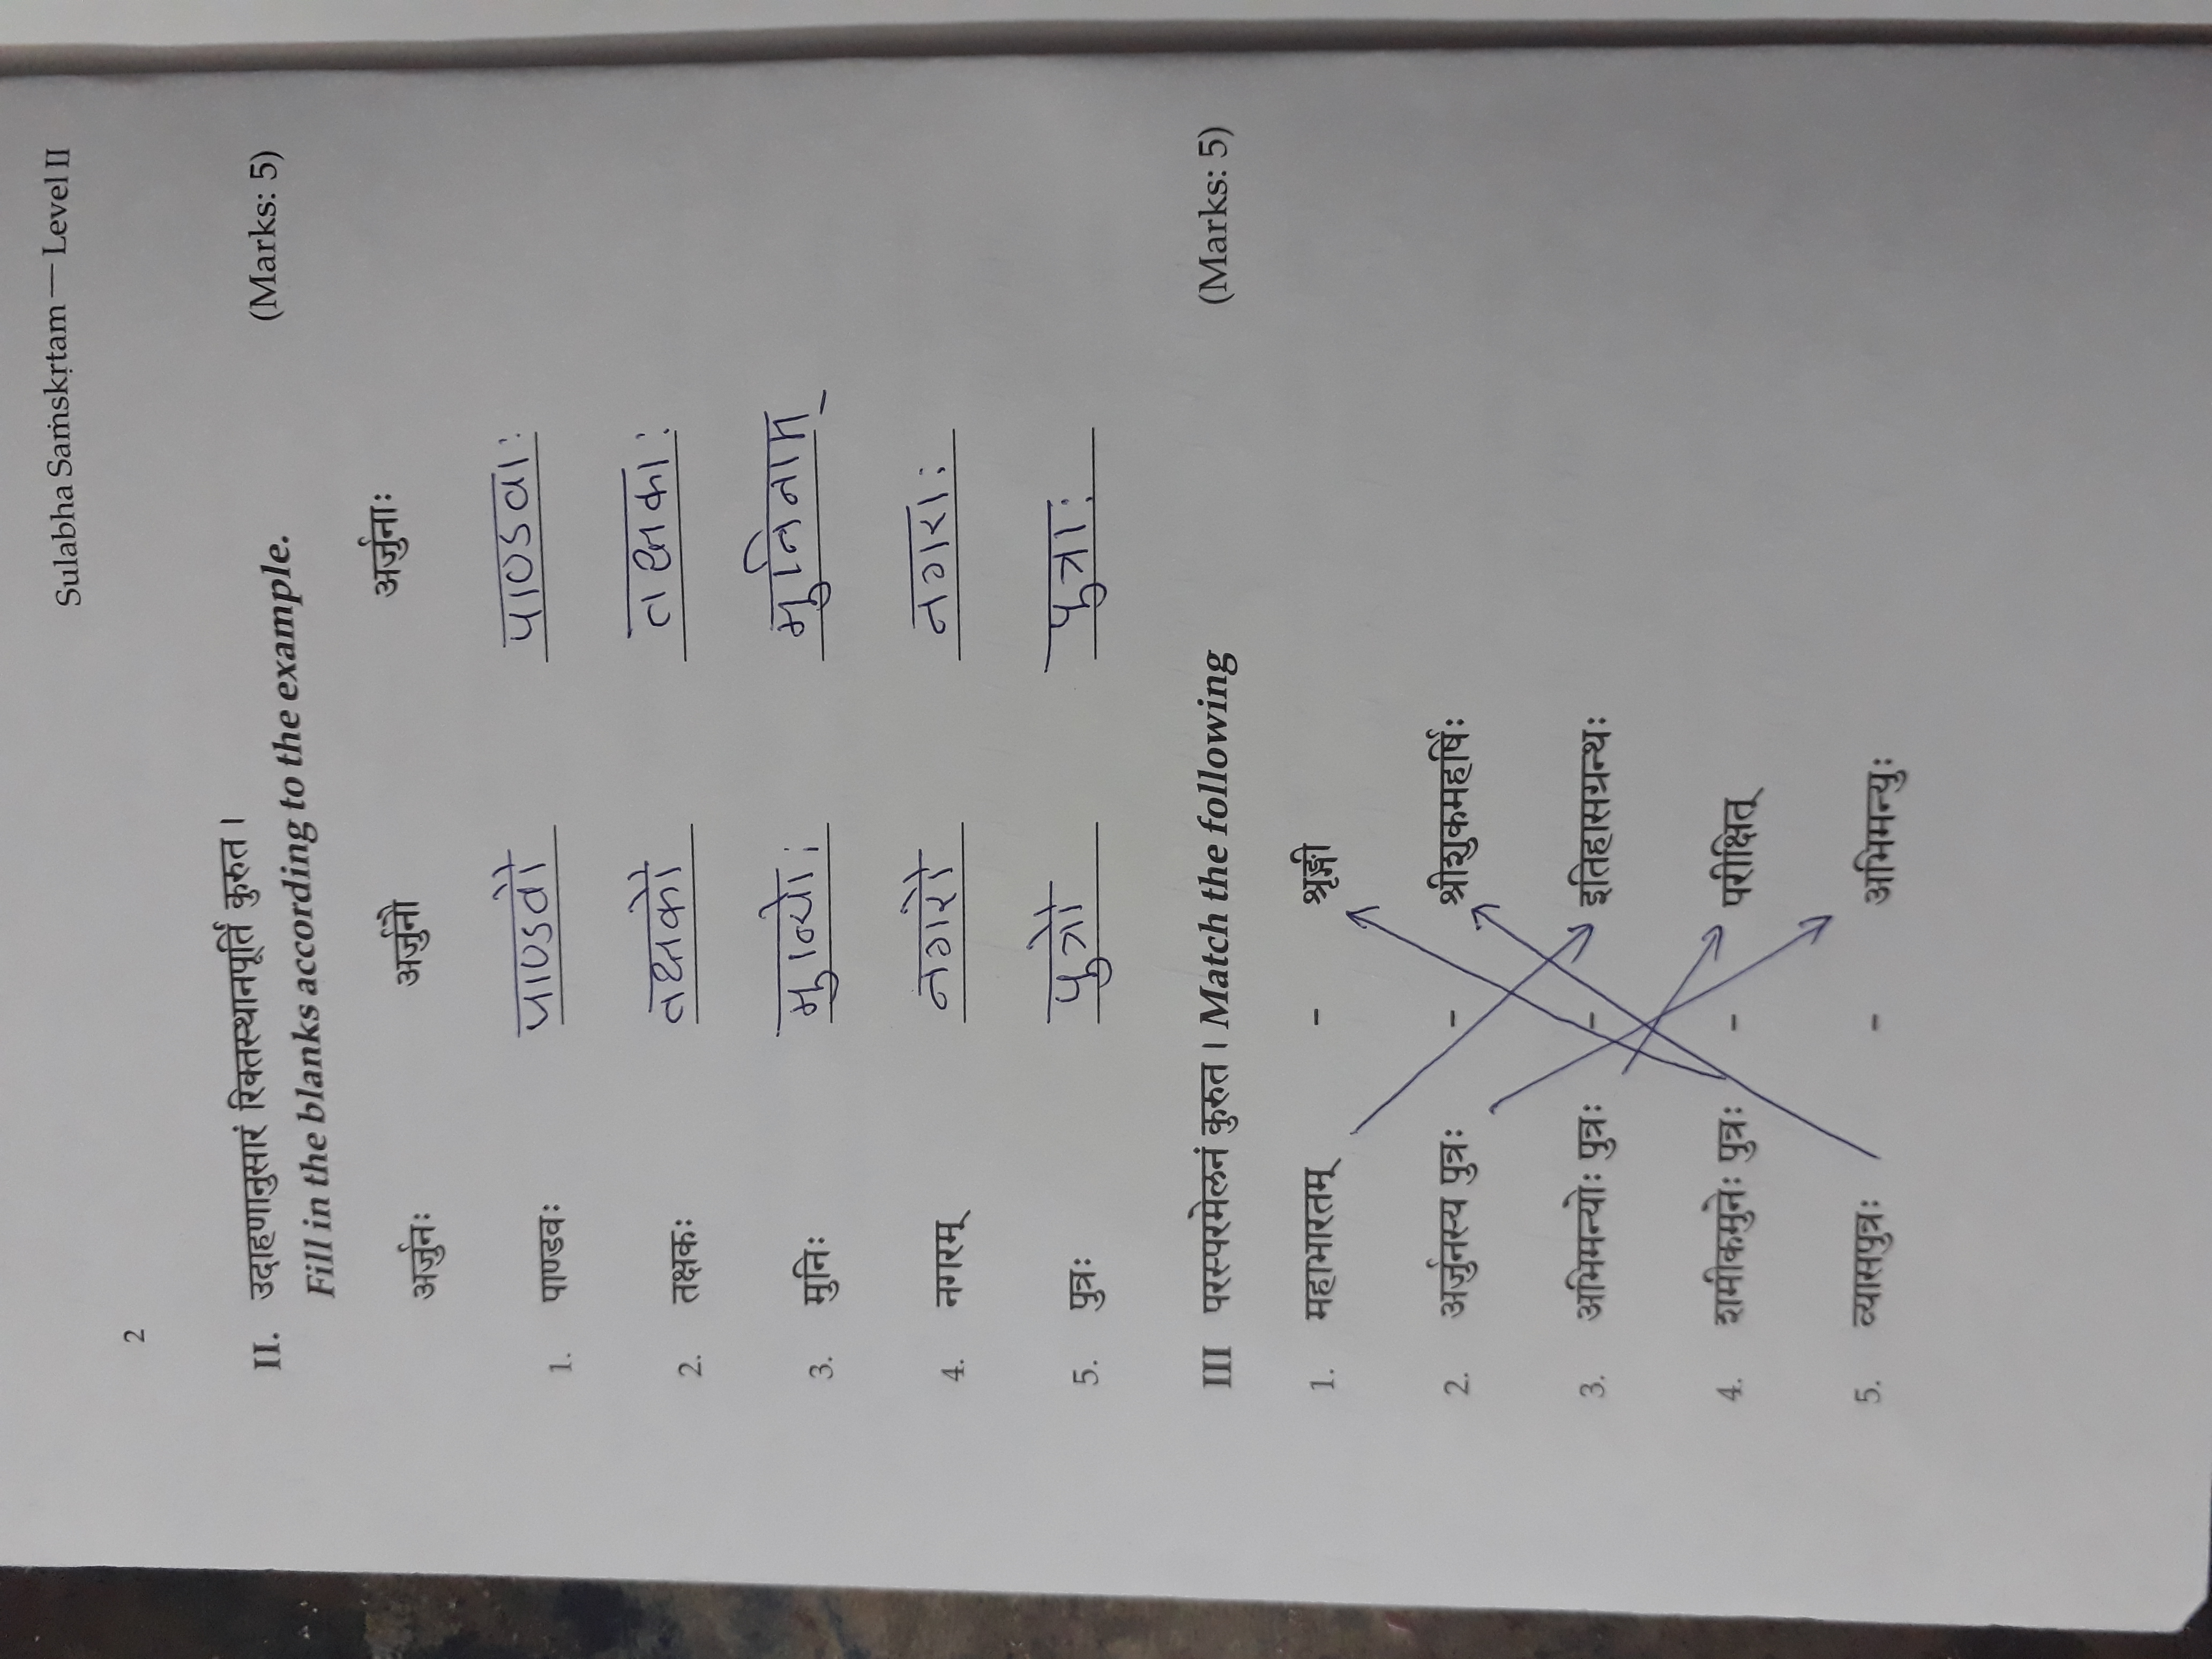 Sulabha Saṁskṛtam — Level II
2
II. उदाहणानुसारं रिक्तस्थानपूर्तिं कुरुत । (Marks: 5)
Fill in the blanks according to the example.
अर्जुनः अर्जुनौ अर्जुनाः
1. पाण्डवः पाण्डवौ पाण्डवाः
2. तक्षकः तक्षकौ तक्षकाः
3. मुनिः मुन्योः मुनिनाम्
4. नगरम् नगरौ नगराः
5. पुत्रः पुत्रौ पुत्राः
III परस्परमेलनं कुरुत । Match the following (Marks: 5)
1. महाभारतम् - श्रृङ्गी
2. अर्जुनस्य पुत्रः - श्रीशुकमहर्षिः
3. अभिमन्योः पुत्रः - इतिहासग्रन्थः
4. शमीकमुनेः पुत्रः - परीक्षित्
5. व्यासपुत्रः - अभिमन्युः